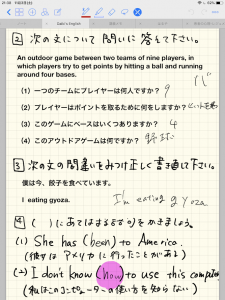 21:30
Gabi's English
2 次の文について 問いに 答えて下さい。
An outdoor game between two teams of nine players, in
which players try to get points by hitting a ball and running
around four bases.
(1) 一つのチームにプレイヤーは何人ですか? 9
(2) プレイヤーはポイントを取るために何をしますか?
(3) このゲームにベースはいくつありますか? 4
(4) このアウトドアゲームは何ですか? 野球
3 次の文の間違いをみつけ正しく書き直して下さい。
僕は今、餃子を食べています。
I eating gyoza. I'm eating gyoza
4 ( )にあてはまる語句をかきましょう。
(1) She has (been) to America.
(彼女はアメリカに行ったことがある)
(2) I don't know (how) to use this computer
(私はこのコンピューターの使い方を知らない)